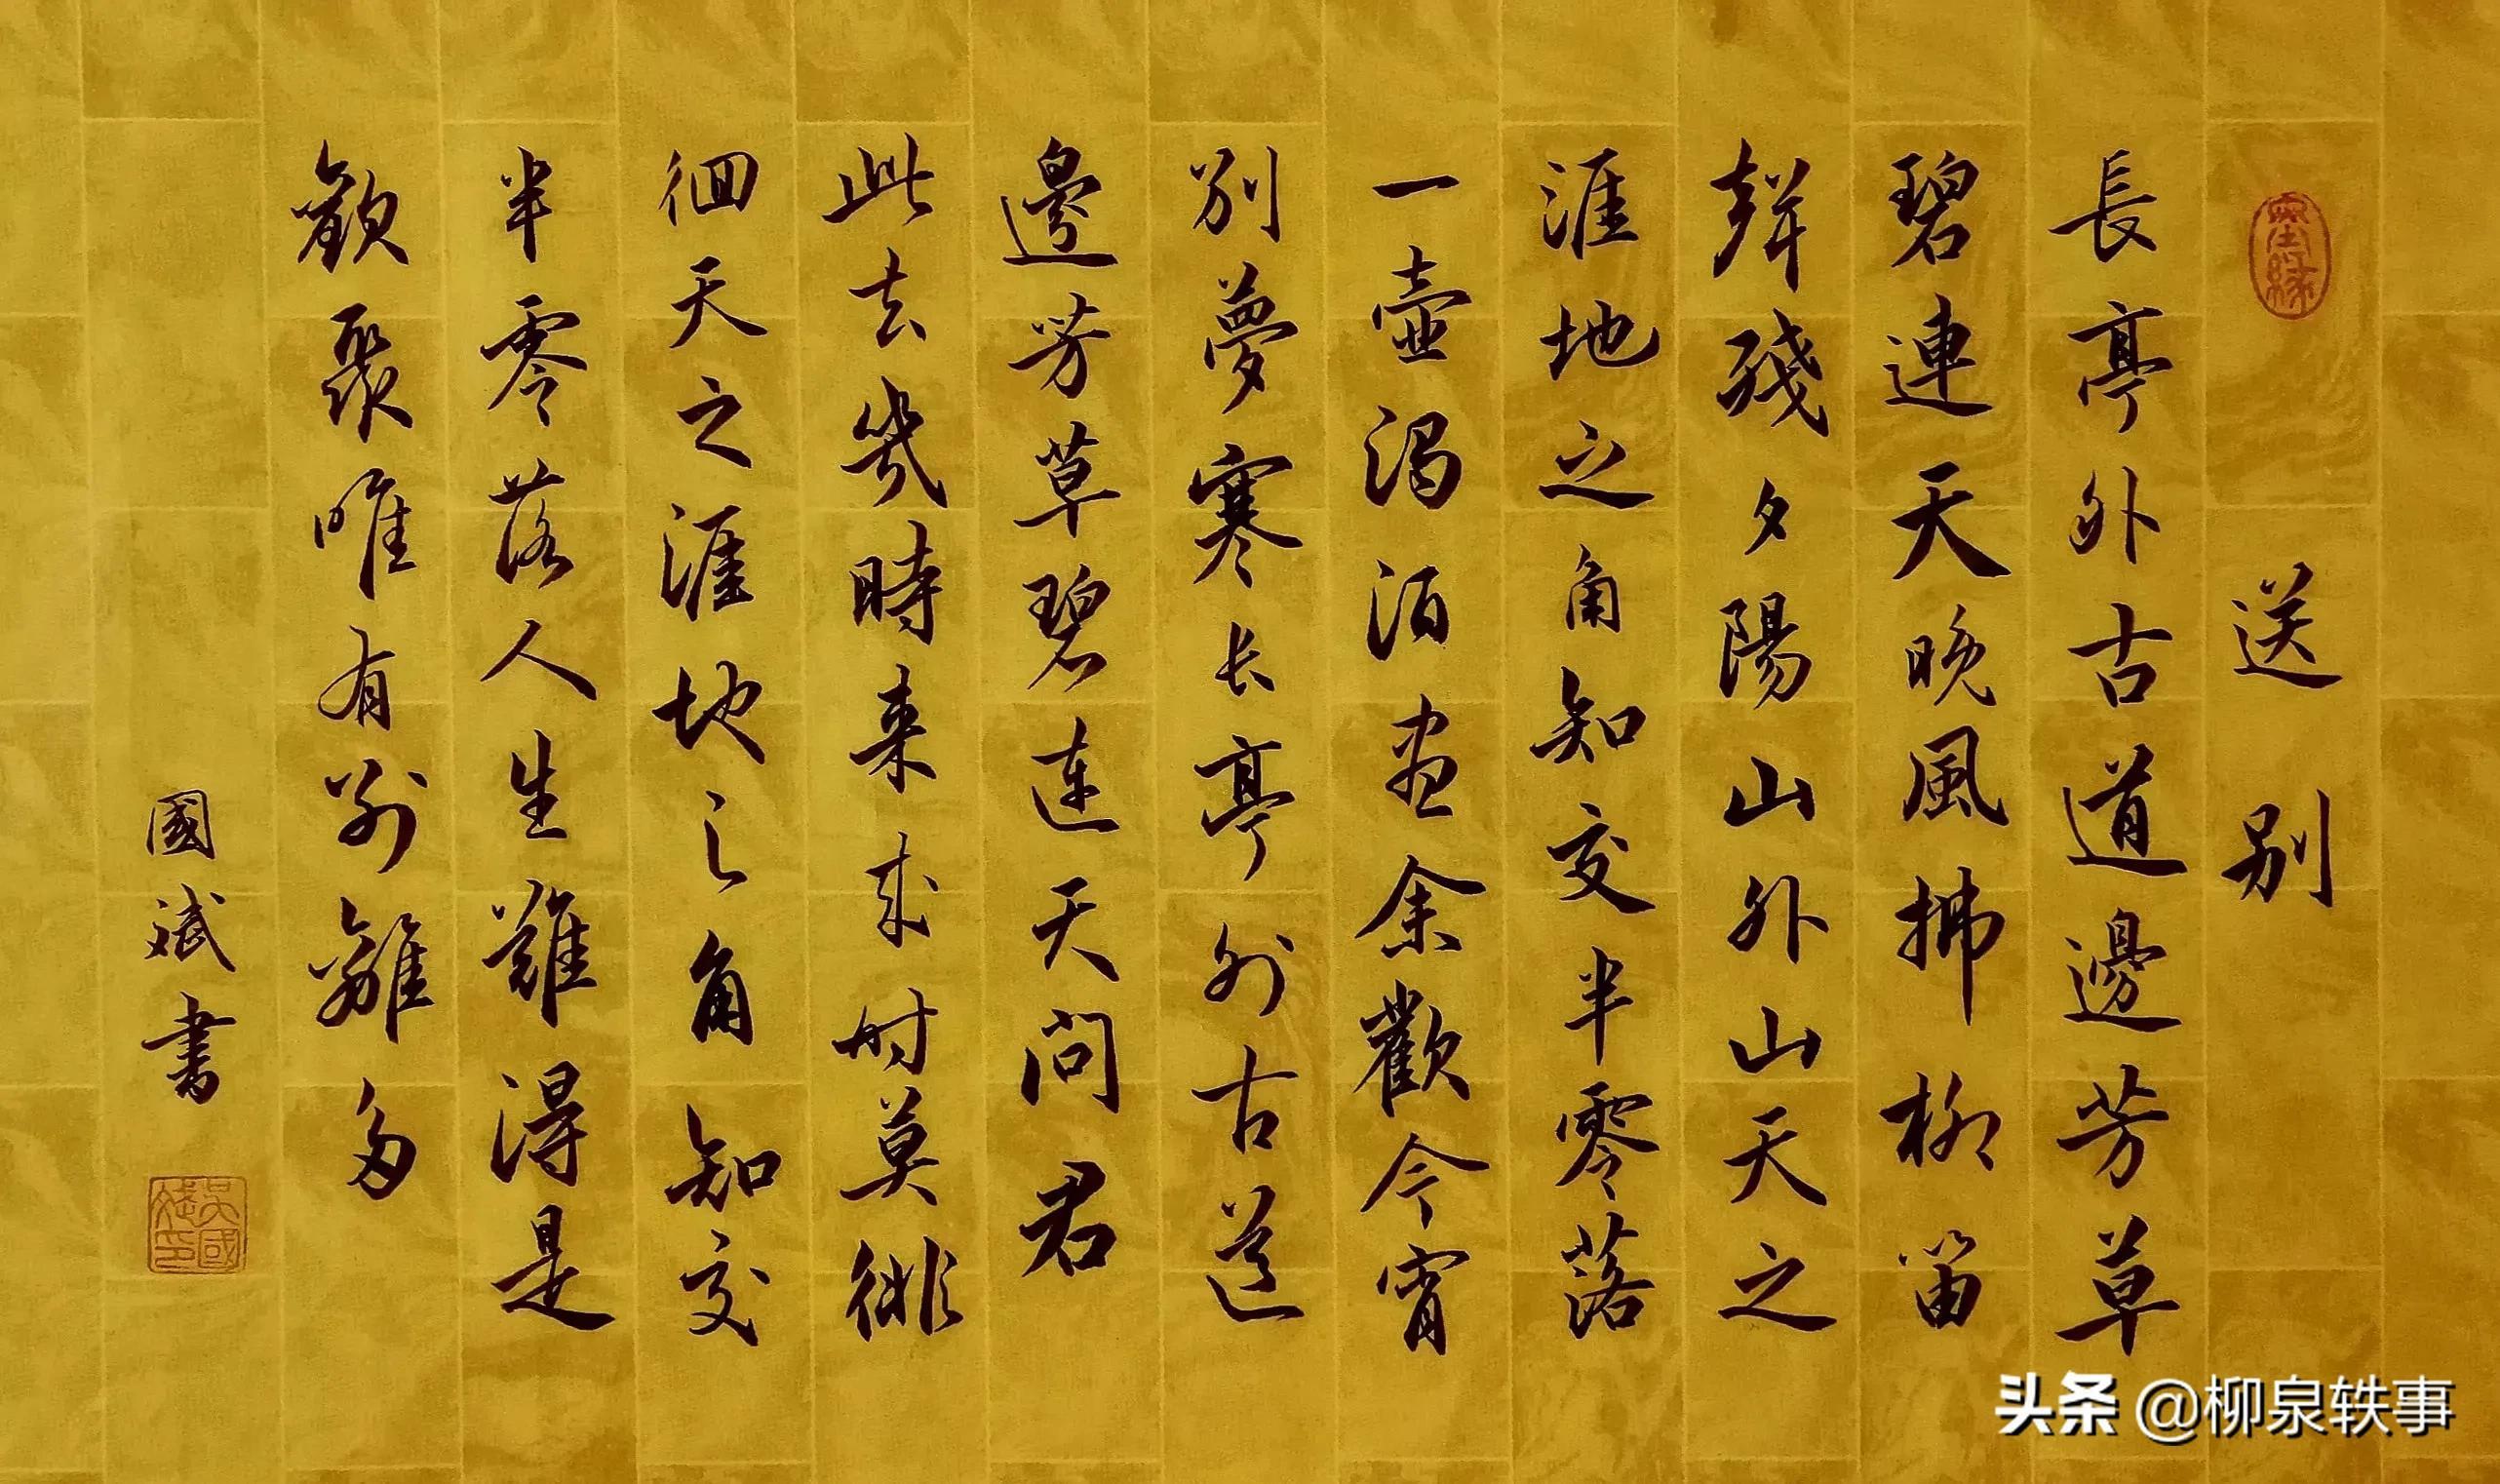 送别
長亭外古道邊芳草
碧連天晚風拂柳笛
聲殘夕陽山外山天之
涯地之角知交半零落
一壺濁酒盡余歡今宵
别夢寒长亭外古道
邊芳草碧連天问君
此去幾時来来时莫徘
徊天之涯地之角知交
半零落人生難得是
歡聚唯有别離多
國斌書
吴國斌印
头条 @柳泉轶事